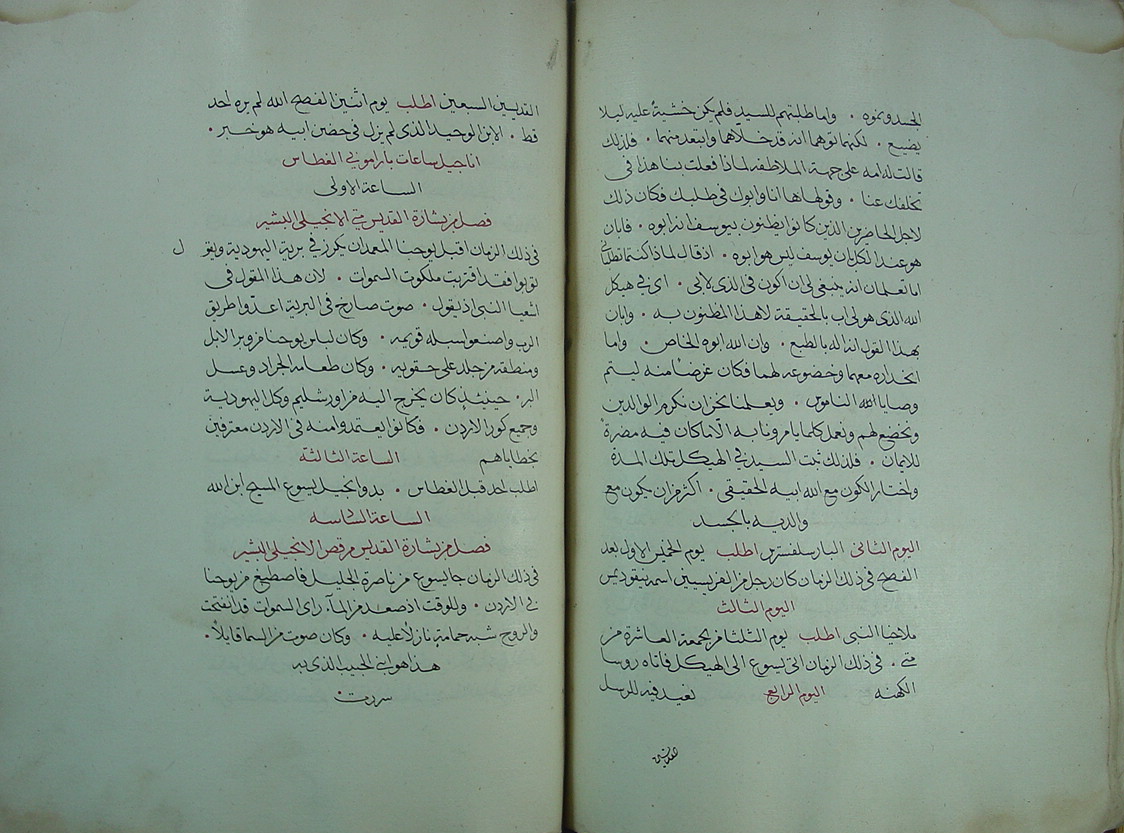 الجسد ونموه · واما طلبتهم للسيد فلم يكن خشية عليه ليلا
يضيع · لكنهما توهما انه قد خلاهما وابتعد منهما · فلذلك
قالت له امه على جهة الملاطفة لماذا فعلت بنا هذا في
تخلفك عنا · وقولها ها انا وابوك في طلبك فكان ذلك
لاجل الحاضرين الذين كانوا يظنون بيوسف انه ابوه · فابان
هو عند الكل بان يوسف ليس هو ابوه · اذ قال لماذا كنتما تطلباني
اما تعلمان انه ينبغي لي ان اكون في الذي لابي · اي في هيكل
الله الذي هو لي اب بالحقيقة لا هذا المظنون به · وابان
بهذا القول انه اله بالطبع · وان الله ابوه الخاص · واما
انحداره معهما وخضوعه لهما فكان غرضا منه ليتم
وصايا الله الناموس · ويعلمنا نحن ان نكرم الوالدين
ونخضع لهم ونعمل كلما يامرونا به الا ما كان فيه مضرة
للايمان · فلذلك ثبت السيد في الهيكل تلك المدة
واختار الكون مع الله ابيه الحقيقي · اكثر من ان يكون مع
والديه بالجسد
اليوم الثاني البار سلفسترس اطلب يوم الخميس الاول بعد
الفصح في ذلك الزمان كان رجل من الفريسيين اسمه نيقوديمس
اليوم الثالث
ملاخيا النبي اطلب يوم الثلثا من الجمعة العاشرة من
متى · في ذلك الزمان اتى يسوع الى الهيكل فاتاه روسا
الكهنه اليوم الرابع نعيد فيه للرسل
القديسين السبعين اطلب يوم اثنين الفصح الله لم يره احد
قط · الابن الوحيد الذي لم يزل في حضن ابيه هو خبر ·
اناجيل ساعات باراموني الغطاس
الساعة الاولى
فصل من بشارة القديس متى الانجيلي البشير
في ذلك الزمان اقبل يوحنا المعمدان يكرز في برية اليهودية ويقول
توبوا فقد اقتربت ملكوت السموات · لان هذا المقول في
اشعيا النبي اذ يقول · صوت صارخ في البرية اعدوا طريق
الرب واصنعوا سبله قويمه · وكان لباس يوحنا من وبر الابل
ومنطقة من جلد على حقويه · وكان طعامه الجراد وعسل
البر · حينيذ كان يخرج اليه من اورشليم وكل اليهودية
وجميع كور الاردن · فكانوا يعتمدوا منه في الاردن معترفين
بخطاياهم الساعة الثالثة
اطلب احد قبل الغطاس · بدو انجيل يسوع المسيح ابن الله
الساعة السادسه
فصل من بشارة القديس مرقص الانجيلي البشير
في ذلك الزمان جا يسوع من ناصرة الجليل فاصطبغ من يوحنا
في الاردن · وللوقت اذ صعد من المآء راى السموات قد انفتحت
والروح شبه حمامة نازلا عليه · وكان صوت من السما قايلا ·
هذا هو ابني الحبيب الذي به
سررت ·